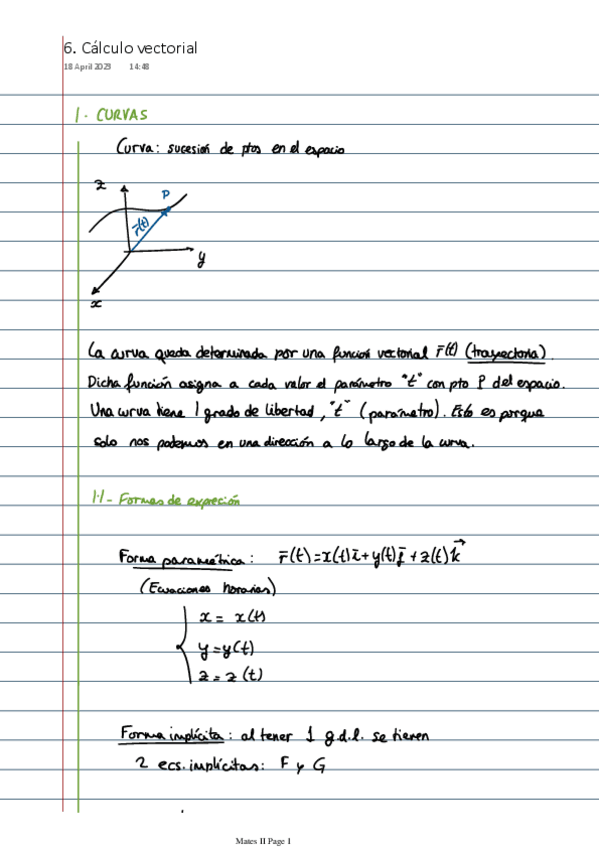 6. Cálculo vectorial
18 April 2023 14:48
1. CURVAS
Curva: sucesión de ptos en el espacio
z
P
r̄(t)
y
x
La curva queda determinada por una función vectorial r̄(t) (trayectoria).
Dicha función asigna a cada valor el parámetro "t" con pto P del espacio.
Una curva tiene 1 grado de libertad, "t" (parámetro). Esto es porque
solo nos podemos en una dirección a lo largo de la curva.
1.1- Formas de expreción
Forma paramétrica: r̄(t)=x(t)i+y(t)j+z(t)k
(Ecuaciones horarias)
x = x(t)
y=y(t)
z=z(t)
Forma implícita: al tener 1 g.d.l. se tienen
2 ecs. implícitas: F y G
Mates II Page 1